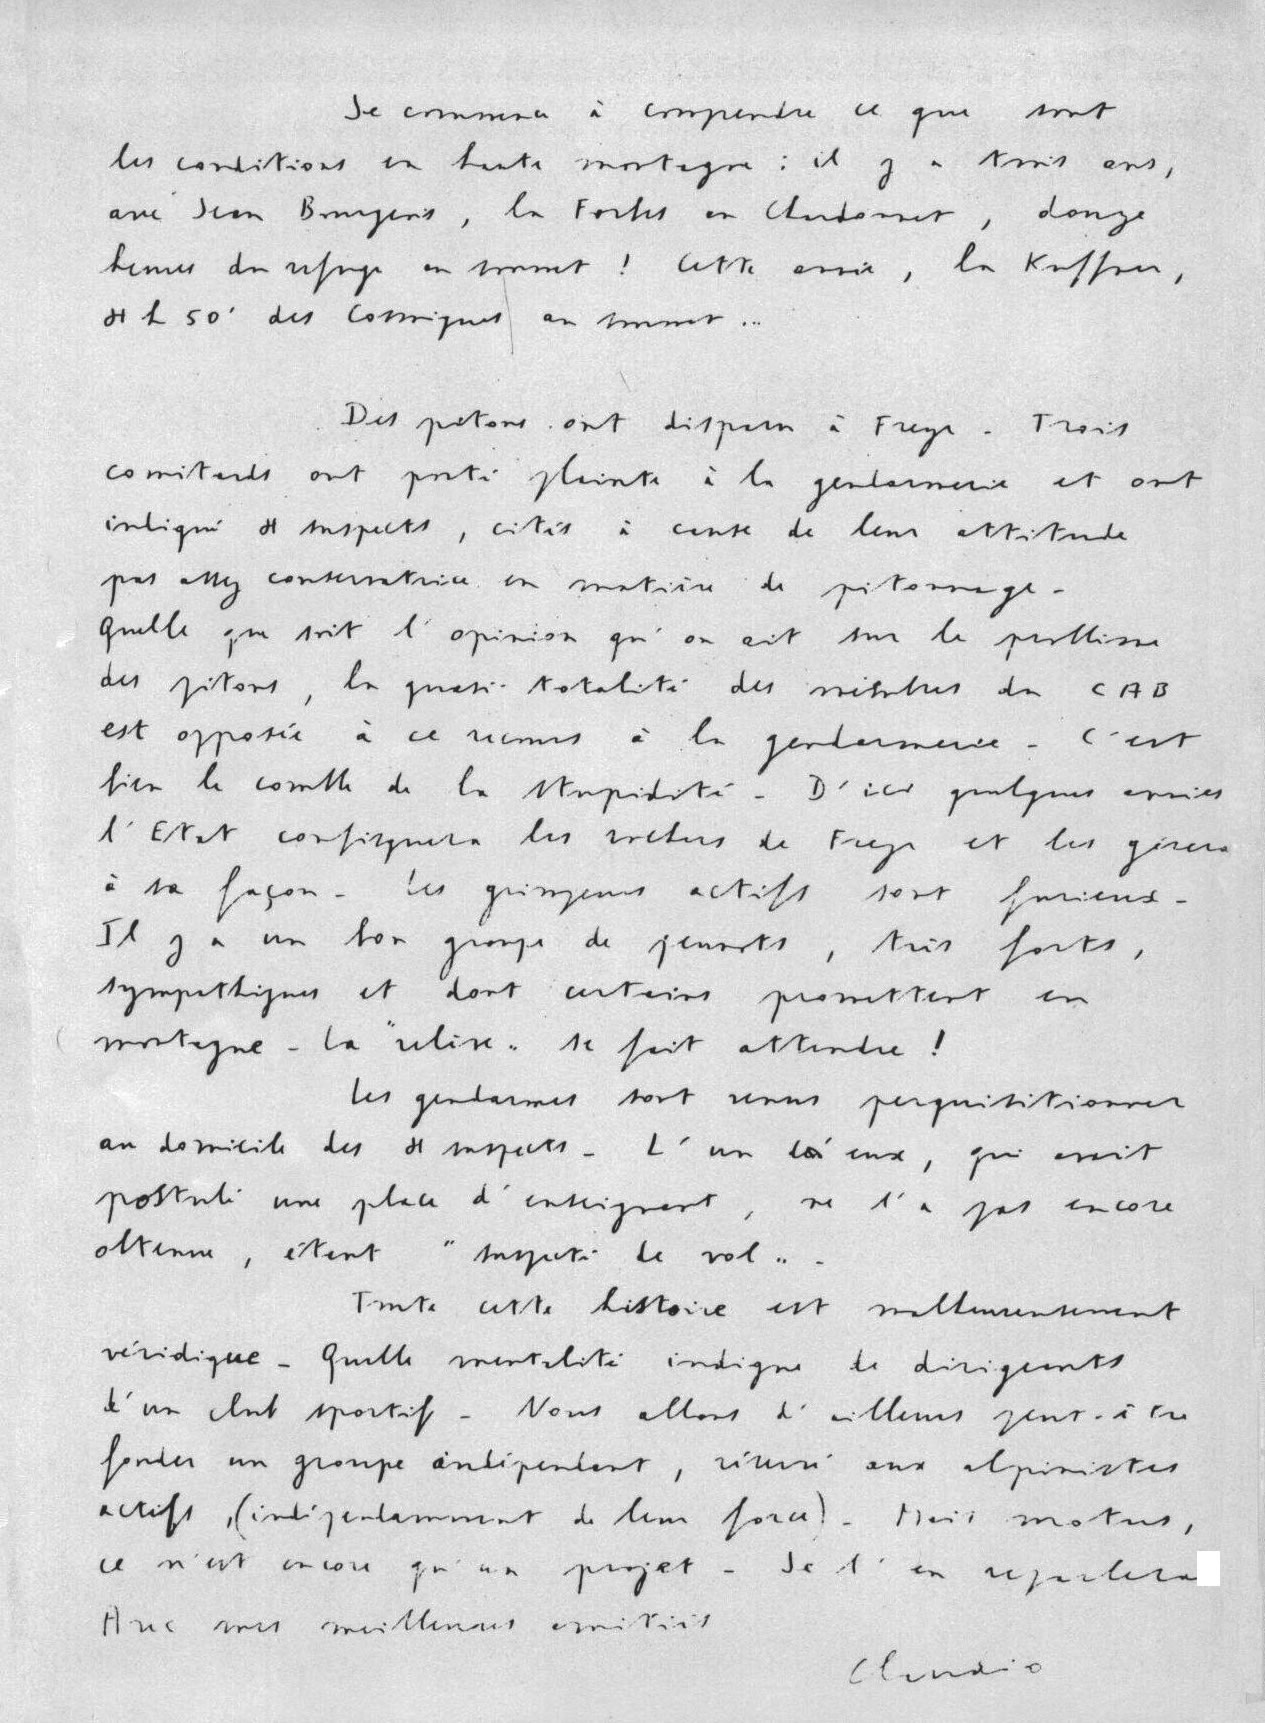 Je commence à comprendre ce que sont
les conditions en haute montagne : il y a trois ans,
avec Jean Bourgeois, la Fortes au Chardonnet, douze
heures du refuge au sommet ! Cette année, la Kuffner,
4 h 50' des Cosmiques au sommet ...
Des pitons ont disparu à Freyr - Trois
comitards ont porté plainte à la gendarmerie et ont
indiqué 4 suspects, cités à cause de leur attitude
pas assez conservatrice en matière de pitonnage -
Quelle que soit l'opinion qu'on ait sur le problème
des pitons, la quasi-totalité des membres du CAB
est opposée à ce recours à la gendarmerie - C'est
bien le comble de la stupidité - D'ici quelques années
l'Etat confisquera les rochers de Freyr et les gérera
à sa façon - Les grimpeurs actifs sont furieux -
Il y a un bon groupe de jeunots, très forts,
sympathiques et dont certains promettent en
montagne - La "relève" se fait attendre !
Les gendarmes sont venus perquisitionner
au domicile des 4 suspects - L'un d'eux, qui avait
postulé une place d'enseignant, ne l'a pas encore
obtenue, étant "suspecté de vol" -
Toute cette histoire est malheureusement
véridique - Quelle mentalité indigne de dirigeants
d'un club sportif - Nous allons d'ailleurs peut-être
fonder un groupe indépendant, réservé aux alpinistes
actifs, (indépendamment de leur force) - Mais motus,
ce n'est encore qu'un projet - Je t'en reparlera
Avec mes meilleures amitiés
Claudio